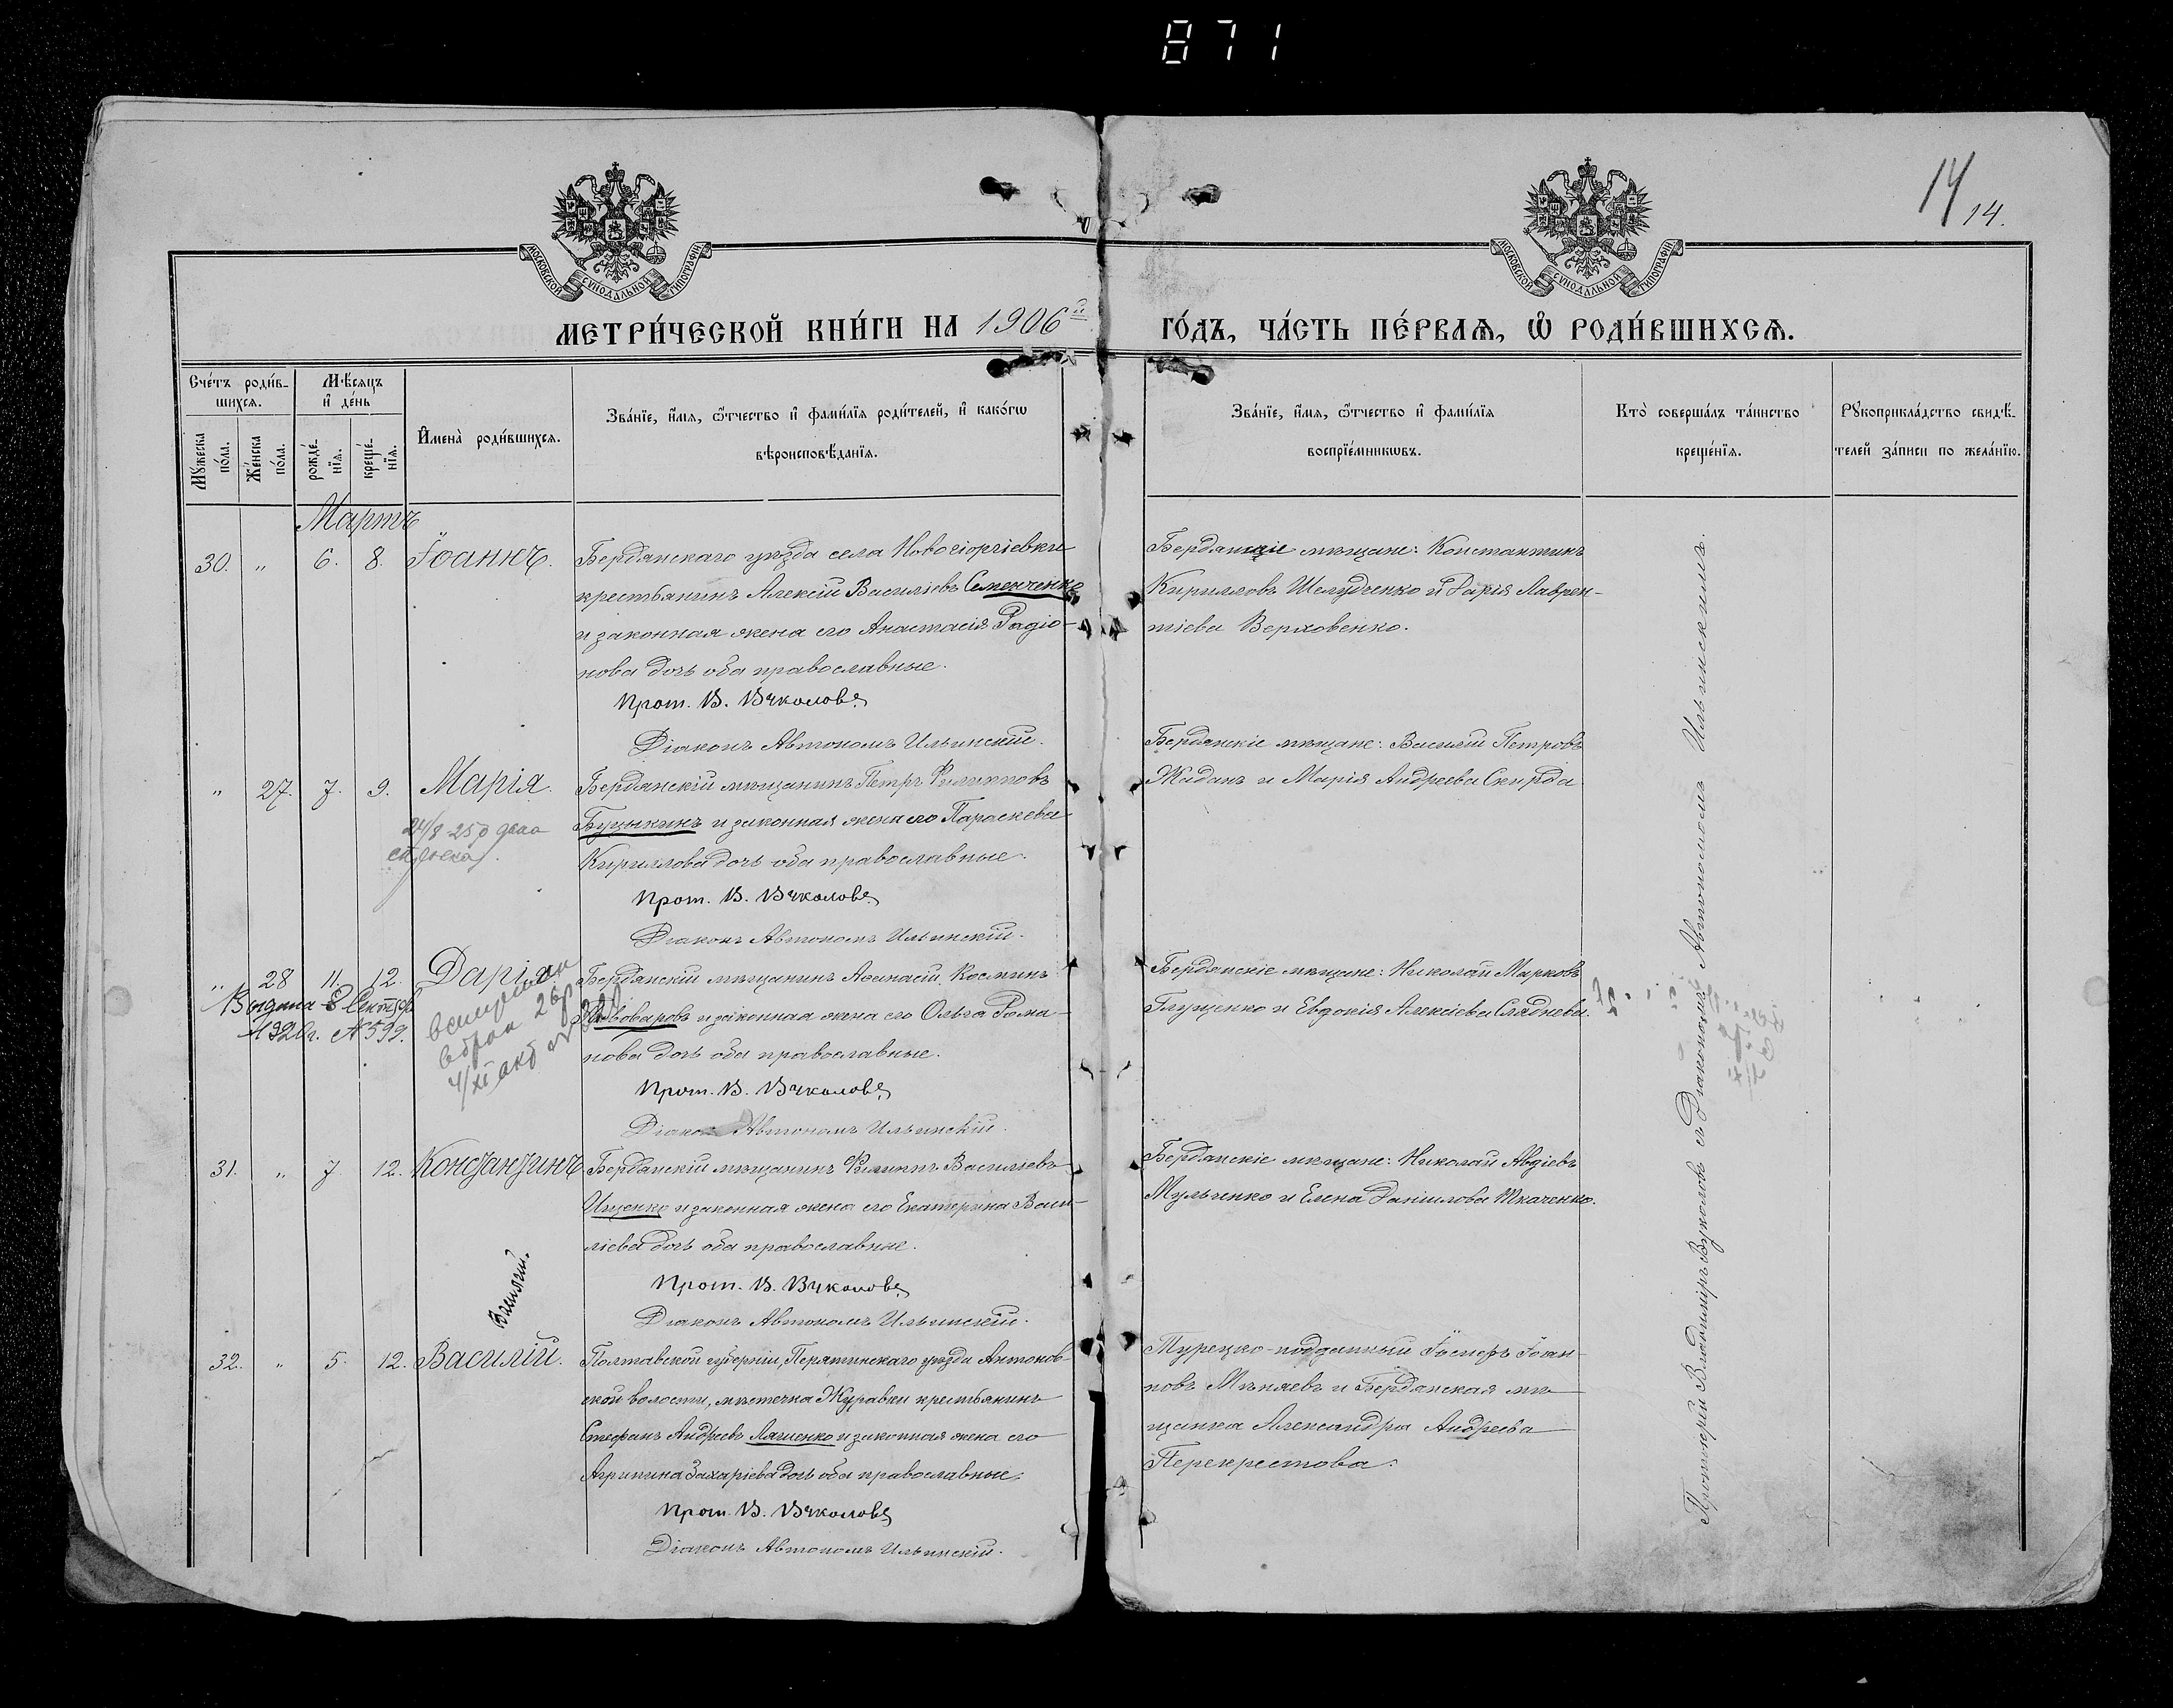 871
14
14.
МОСКОВСКОЙ СѴНОДАЛЬНОЙ ТИПОГРАФІИ
МОСКОВСКОЙ СѴНОДАЛЬНОЙ ТИПОГРАФІИ
МЕТРИ́ЧЕСКОЙ КНИ́ГИ НА 1906й
ГО́ДЪ, ЧА́СТЬ ПЕ́РВАѦ, Ѽ РОДИ́ВШИХСѦ.
Сче́тъ роди́в-
шихсѧ.
Мѣ́сѧцъ
и҆ де́нь
Мꙋ́жеска
по́ла.
Же́нска
по́ла.
рожде́-
нїѧ.
креще́-
нїѧ.
И҆мена̀ роди́вшихсѧ.
Зва́нїе, и҆́мѧ, ѻ҆́тчество и҆ фами́лїѧ роди́телей, и҆ како́гѡ
вѣроисповѣ́данїѧ.
Зва́нїе, и҆́мѧ, ѻ҆́тчество и҆ фами́лїѧ
воспрїе́мникѡвъ.
Кто̀ соверша́лъ та́инство
креще́нїѧ.
Рꙋкоприкла́дство свидѣ́-
телей за́писи по жела́нїю.
Мартъ
30. " 6. 8. Іоаннъ.
Бердянскаго уѣзда села Новогіоргіевки
крестьянинъ Алексій Василіевъ Семенченко
и законная жена его Анастасія Радіо-
нова дочь оба православные.
Прот. В. Вуколовъ
Діаконъ Автономъ Ильинскій.
Бердянскіе мѣщане: Константинъ
Кирилловъ Шелудченко и Дарія Лаврен-
тіева Верховенко.
" 27. 7. 9. Марія.
Бердянскій мѣщанинъ Петръ Филипповъ
Буцыкинъ и законная жена его Параскева
Кириллова дочь оба православные.
Прот. В. Вуколовъ
Діаконъ Автономъ Ильинскій.
Бердянскіе мѣщане: Василій Петровъ
Жаданъ и Марія Андреева Скирда
" 28 11. 12. Дарія.
Выдана 8 Сентября
N599.
Бердянскій мѣщанинъ Аѳанасій Косминъ
Пивоваровъ и законная жена его Ольга Рома-
нова дочь оба православные.
Прот. В. Вуколовъ
Діаконъ Автономъ Ильинскій.
Бердянскіе мѣщане: Николай Марковъ
Глущенко и Евдокія Алексіева Сляднева.
31. " 7. 12. Константинъ
Бердянскій мѣщанинъ Филиппъ Василіевъ
Ищенко и законная жена его Екатерина Васи-
ліева дочь оба православные.
Прот. В. Вуколовъ
Діаконъ Автономъ Ильинскій.
Бердянскіе мѣщане: Николай Авдіевъ
Мульченко и Елена Даніилова Ткаченко.
Василій.
32. " 5. 12. Василій.
Полтавской губерніи, Пирятинскаго уѣзда Антонов-
ской волости, мѣстечка Журавки крестьянинъ
Стефанъ Андреевъ Ляшенко и законная жена его
Агрипина Захаріева дочь оба православные.
Прот. В. Вуколовъ
Діаконъ Автономъ Ильинскій.
Турецко-подданный Іосифъ Іоан-
новъ и Бердянская мѣ-
щанка Александра Андреева
Перекрестова.
Протоіерей Владиміръ Вуколовъ съ Діакономъ Автономомъ Ильинскимъ.